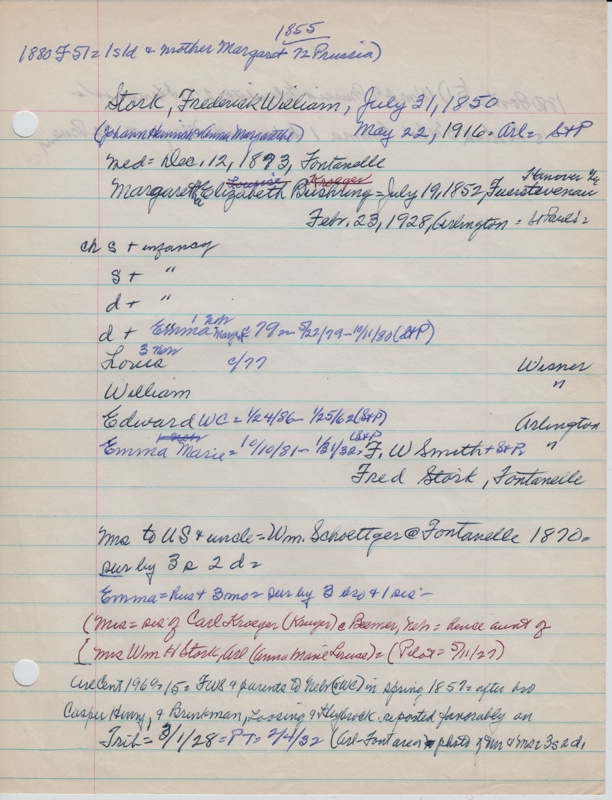 1855
1880 F 51 = 1s 1d + mother Margaret 72 Prussia)
Stork, Frederick William, July 31, 1850
(Johann Heinrich + Anna Margarethe) May 22, 1916 = Arl = St P
Med = Dec. 12, 1873, Fontanelle
Louise Kroeger Hanover
Margaretha Elizabeth Bushting = July 19, 1852, Fuerstevenau
Febr. 23, 1928, Arlington = St Paul's =
ch s + infancy
s + "
d + "
1 Nov
d + Emma Margt c 79 = 5/22/79 - 10/11/80 (St P)
3 Nov
Louisa c/77 Wisner
William "
Edward WC = 1/24/86 - 1/25/62 (St P) Arlington
Emma Marie = 10/10/81 - 1/31/32 (St P) F. W Smith + St P. "
Fred Stork, Fontanelle
Mrs to US + uncle = Wm. Schoettger @ Fontanelle 1870 =
sur by 3 s 2 d =
Emma = hus + 3 mo = sur by 3 bro + 1 sis =
(Mrs = sis of Carl Kroeger (Kruger) c Beemer, Neb = hence aunt of
[ Mrs Wm H Stork, Arl (Anna Marie Louise) = (Pilot = 5/11/27)
Arl Cent 1969 = 15 = FWS + parents to Nebr (WC) in spring 1857 = after bro
Casper Henry, + Brinkman, Loosing + Heybrock reported favorably on
Trib = 3/1/28 = PT = 2/4/32 (Arl-Font area) photo of Mr + Mrs 3 s 2 d,